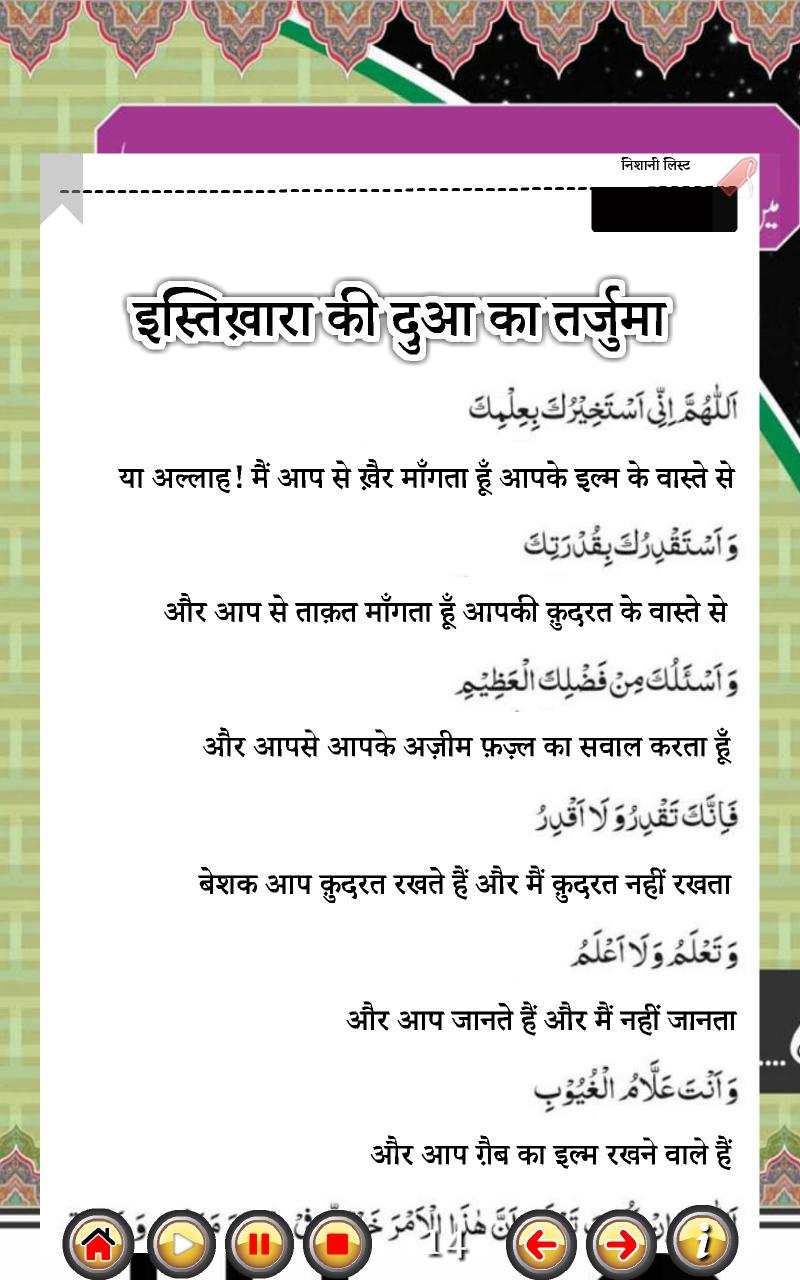 निशानी लिस्ट
इस्तिख़ारा की दुआ का तर्जुमा
اَللّٰهُمَّ اِنِّیْ اَسْتَخِیْرُكَ بِعِلْمِكَ
या अल्लाह! मैं आप से ख़ैर माँगता हूँ आपके इल्म के वास्ते से
وَ اَسْتَقْدِرُكَ بِقُدْرَتِكَ
और आप से ताक़त माँगता हूँ आपकी क़ुदरत के वास्ते से
وَ اَسْئَلُكَ مِنْ فَضْلِكَ الْعَظِیْمِ
और आपसे आपके अज़ीम फ़ज़्ल का सवाल करता हूँ
فَاِنَّكَ تَقْدِرُ وَ لَا اَقْدِرُ
बेशक आप क़ुदरत रखते हैं और मैं क़ुदरत नहीं रखता
وَ تَعْلَمُ وَ لَا اَعْلَمُ
और आप जानते हैं और मैं नहीं जानता
وَ اَنْتَ عَلَّامُ الْغُیُوْبِ
और आप ग़ैब का इल्म रखने वाले हैं
اَنَّ هٰذَا الْاَمْرَ
14